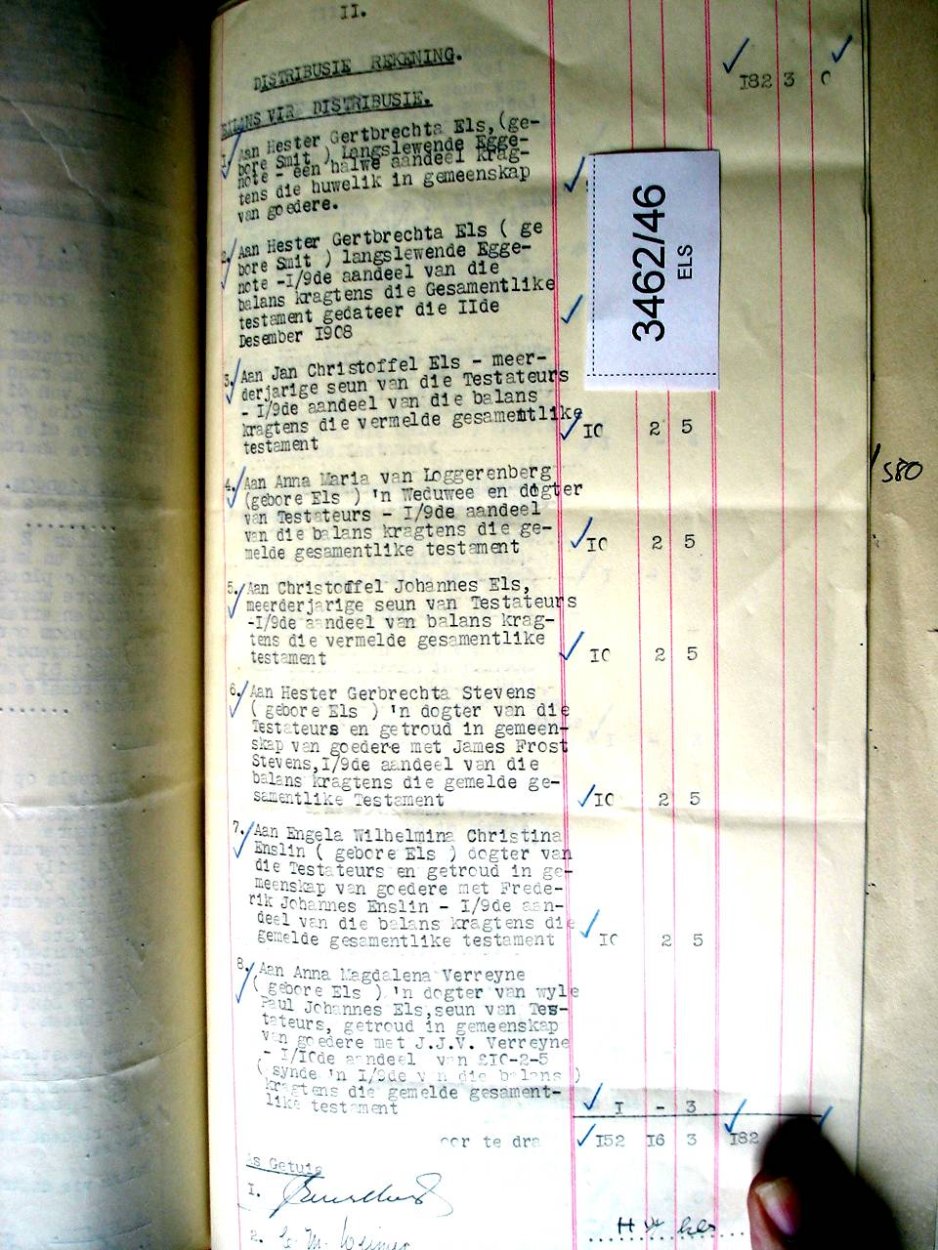 II.
DISTRIBUSIE REKENING.
182 3 0
BALANS VIR DISTRIBUSIE.
1. Aan Hester Gertbrechta Els, (ge-
bore Smit ) Langslewende Egge-
note - een halwe aandeel krag-
tens die huwelik in gemeenskap
van goedere.
3462/46
ELS
2. Aan Hester Gertbrechta Els ( ge
bore Smit ) langslewende Egge-
note -I/9de aandeel van die
balans kragtens die Gesamentlike
testament gedateer die IIde
Desember I908
3. Aan Jan Christoffel Els - meer-
derjarige seun van die Testateurs
- I/9de aandeel van die balans
kragtens die vermelde gesamentlike
testament IO 2 5
580
4. Aan Anna Maria van Loggerenberg
(gebore Els ) 'n Weduwee en dogter
van Testateurs - I/9de aandeel
van die balans kragtens die ge-
melde gesamentlike testament IO 2 5
5. Aan Christoffel Johannes Els,
meerderjarige seun van Testateurs
-I/9de aandeel van balans krag-
tens die vermelde gesamentlike
testament IO 2 5
6. Aan Hester Gerbrechta Stevens
( gebore Els ) 'n dogter van die
Testateurs en getroud in gemeen-
skap van goedere met James Frost
Stevens,I/9de aandeel van die
balans kragtens die gemelde ge-
samentlike Testament IO 2 5
7. Aan Engela Wilhelmina Christina
Enslin ( gebore Els ) dogter van
die Testateurs en getroud in ge-
meenskap van goedere met Frede-
rik Johannes Enslin - I/9de aan-
deel van die balans kragtens die
gemelde gesamentlike testament IO 2 5
8. Aan Anna Magdalena Verreyne
( gebore Els ) 'n dogter van wyle
Paul Johannes Els,seun van Tes-
tateurs, getroud in gemeenskap
van goedere met J.J.V. Verreyne
- I/IOde aandeel van £IO-2-5
( synde 'n I/9de van die balans )
kragtens die gemelde gesament-
like testament I - 3
oor te dra I52 I6 3 I82
As Getuie
I.
2.